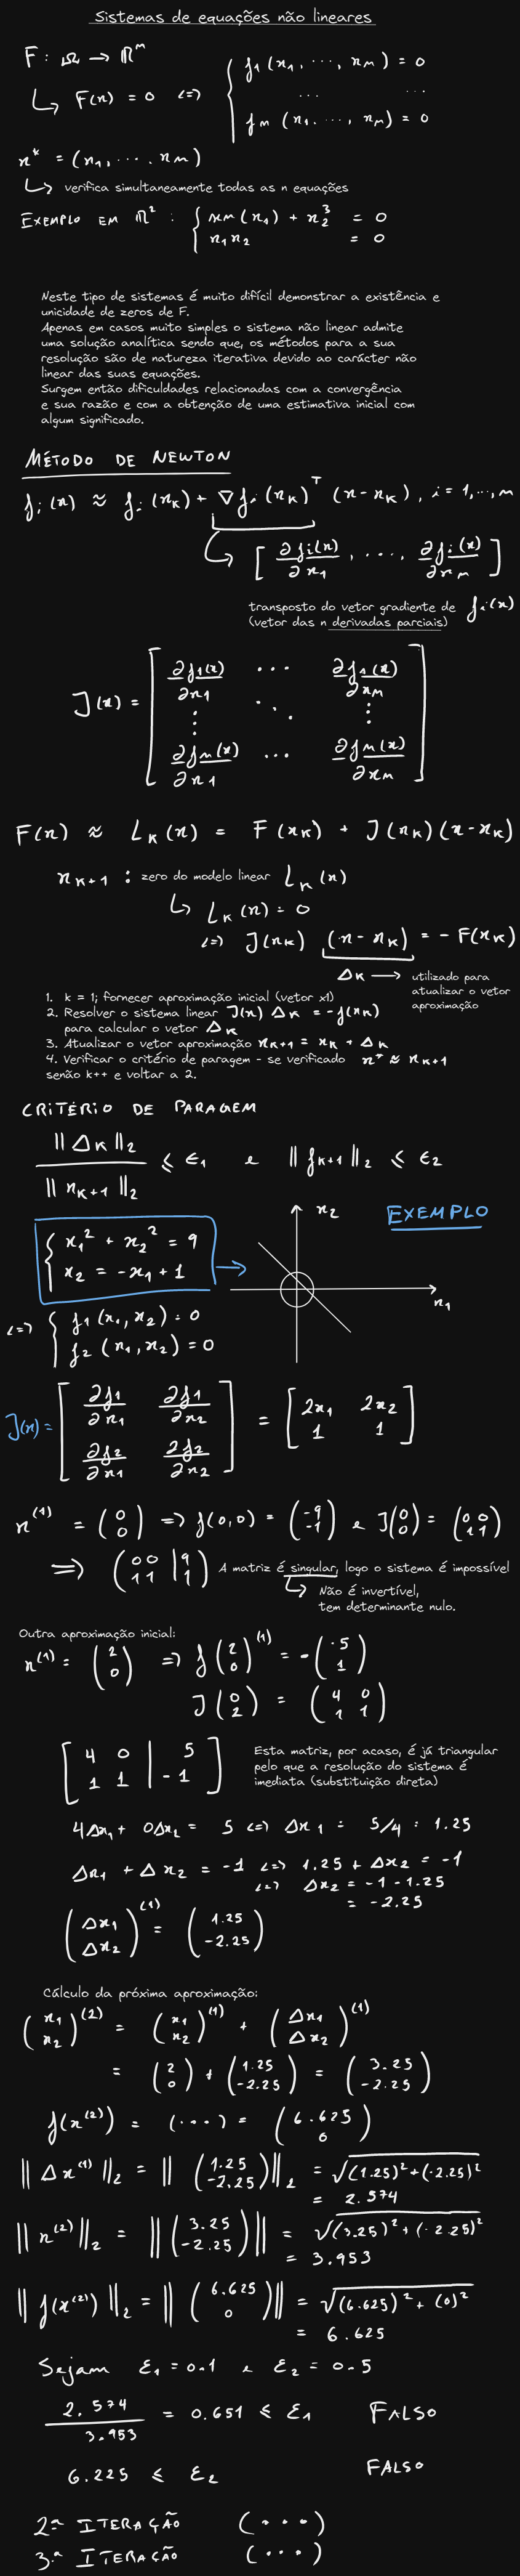 Sistemas de equações não lineares
F : Ω → ℝⁿ
↳ F(x) = 0 <=> { f₁(x₁, ..., xₙ) = 0
... ...
fₙ(x₁, ..., xₙ) = 0
x* = (x₁, ..., xₙ)
↳ verifica simultaneamente todas as n equações
EXEMPLO EM ℝ² : { sen(x₁) + x₂³ = 0
x₁x₂ = 0
Neste tipo de sistemas é muito difícil demonstrar a existência e
unicidade de zeros de F.
Apenas em casos muito simples o sistema não linear admite
uma solução analítica sendo que, os métodos para a sua
resolução são de natureza iterativa devido ao carácter não
linear das suas equações.
Surgem então dificuldades relacionadas com a convergência
e sua razão e com a obtenção de uma estimativa inicial com
algum significado.
MÉTODO DE NEWTON
fᵢ(x) ≈ fᵢ(xₖ) + ∇fᵢ(xₖ)ᵀ (x-xₖ), i = 1, ..., n
↳ [ ∂fᵢ(x)/∂x₁ , ..., ∂fᵢ(x)/∂xₙ ]
transposto do vetor gradiente de fᵢ(x)
(vetor das n derivadas parciais)
J(x) = [ ∂f₁(x)/∂x₁ ... ∂f₁(x)/∂xₙ
⋮ ⋱ ⋮
∂fₙ(x)/∂x₁ ... ∂fₙ(x)/∂xₙ ]
F(x) ≈ Lₖ(x) = F(xₖ) + J(xₖ)(x-xₖ)
xₖ₊₁ : zero do modelo linear Lₖ(x)
↳ Lₖ(x) = 0
<=> J(xₖ) (x - xₖ) = - F(xₖ)
Δₖ → utilizado para
atualizar o vetor
aproximação
1. k = 1; fornecer aproximação inicial (vetor x1)
2. Resolver o sistema linear J(x) Δₖ = -f(xₖ)
para calcular o vetor Δₖ
3. Atualizar o vetor aproximação xₖ₊₁ = xₖ + Δₖ
4. Verificar o critério de paragem - se verificado x* ≈ xₖ₊₁
senão k++ e voltar a 2.
CRITÉRIO DE PARAGEM
||Δₖ||₂ / ||xₖ₊₁||₂ ≤ ε₁ e ||fₖ₊₁||₂ ≤ ε₂
EXEMPLO
{ x₁² + x₂² = 9
x₂ = -x₁ + 1
x₂
x₁
<=> { f₁(x₁, x₂) = 0
f₂(x₁, x₂) = 0
J(x) = [ ∂f₁/∂x₁ ∂f₁/∂x₂
∂f₂/∂x₁ ∂f₂/∂x₂ ] = [ 2x₁ 2x₂
1 1 ]
x⁽¹⁾ = (0 0) => f(0,0) = (-9 -1) e J(0 0) = (0 0 1 1)
=> (0 0 | 9 1 1 | 1) A matriz é singular, logo o sistema é impossível
↳ Não é invertível,
tem determinante nulo.
Outra aproximação inicial:
x⁽¹⁾ = (2 0) => f(2 0)⁽¹⁾ = -(-5 1)
J(0 2) = (4 0 1 1)
[ 4 0 | 5
1 1 | -1 ]
Esta matriz, por acaso, é já triangular
pelo que a resolução do sistema é
imediata (substituição direta)
4Δx₁ + 0Δx₂ = 5 <=> Δx₁ = 5/4 = 1.25
Δx₁ + Δx₂ = -1 <=> 1.25 + Δx₂ = -1
<=> Δx₂ = -1 - 1.25
= -2.25
(Δx₁ Δx₂)⁽¹⁾ = (1.25 -2.25)
Cálculo da próxima aproximação:
(x₁ x₂)⁽²⁾ = (x₁ x₂)⁽¹⁾ + (Δx₁ Δx₂)⁽¹⁾
= (2 0) + (1.25 -2.25) = (3.25 -2.25)
f(x⁽²⁾) = (...) = (6.625 0)
||Δx⁽¹⁾||₂ = ||(1.25 -2.25)||₂ = √(1.25)²+(-2.25)²
= 2.574
||x⁽²⁾||₂ = ||(3.25 -2.25)|| = √(3.25)²+(-2.25)²
= 3.953
||f(x⁽²⁾)||₂ = ||(6.625 0)|| = √(6.625)²+(0)²
= 6.625
Sejam ε₁ = 0.1 e ε₂ = 0.5
2.574 / 3.953 = 0.651 ≤ ε₁ FALSO
6.225 ≤ ε₂ FALSO
2.ª ITERAÇÃO (...)
3.ª ITERAÇÃO (...)